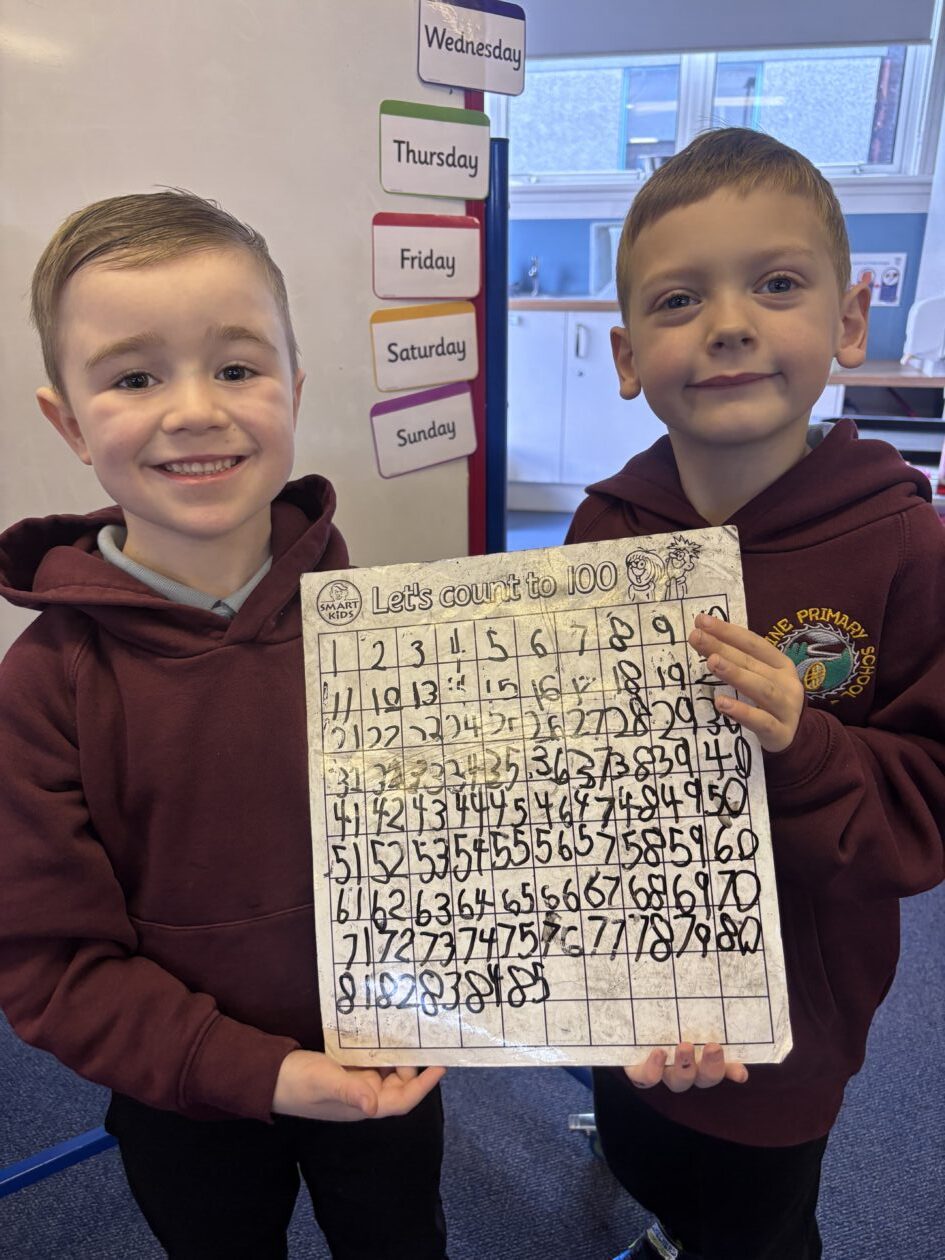 Wednesday
Thursday
Friday
Saturday
Sunday
SMART KIDS
Let's count to 100
1 2 3 4 5 6 7 8 9 10
11 13 14 15 16 18 19
21 22 24 26 27 28 29 30
31 32 33 34 35 36 37 38 39 40
41 42 43 44 45 46 47 48 49 50
51 52 53 54 55 56 57 58 59 60
61 62 63 64 65 66 67 68 69 70
71 72 73 74 75 76 77 78 79 80
81 82 83 84 85
PRIMARY SCHOOL